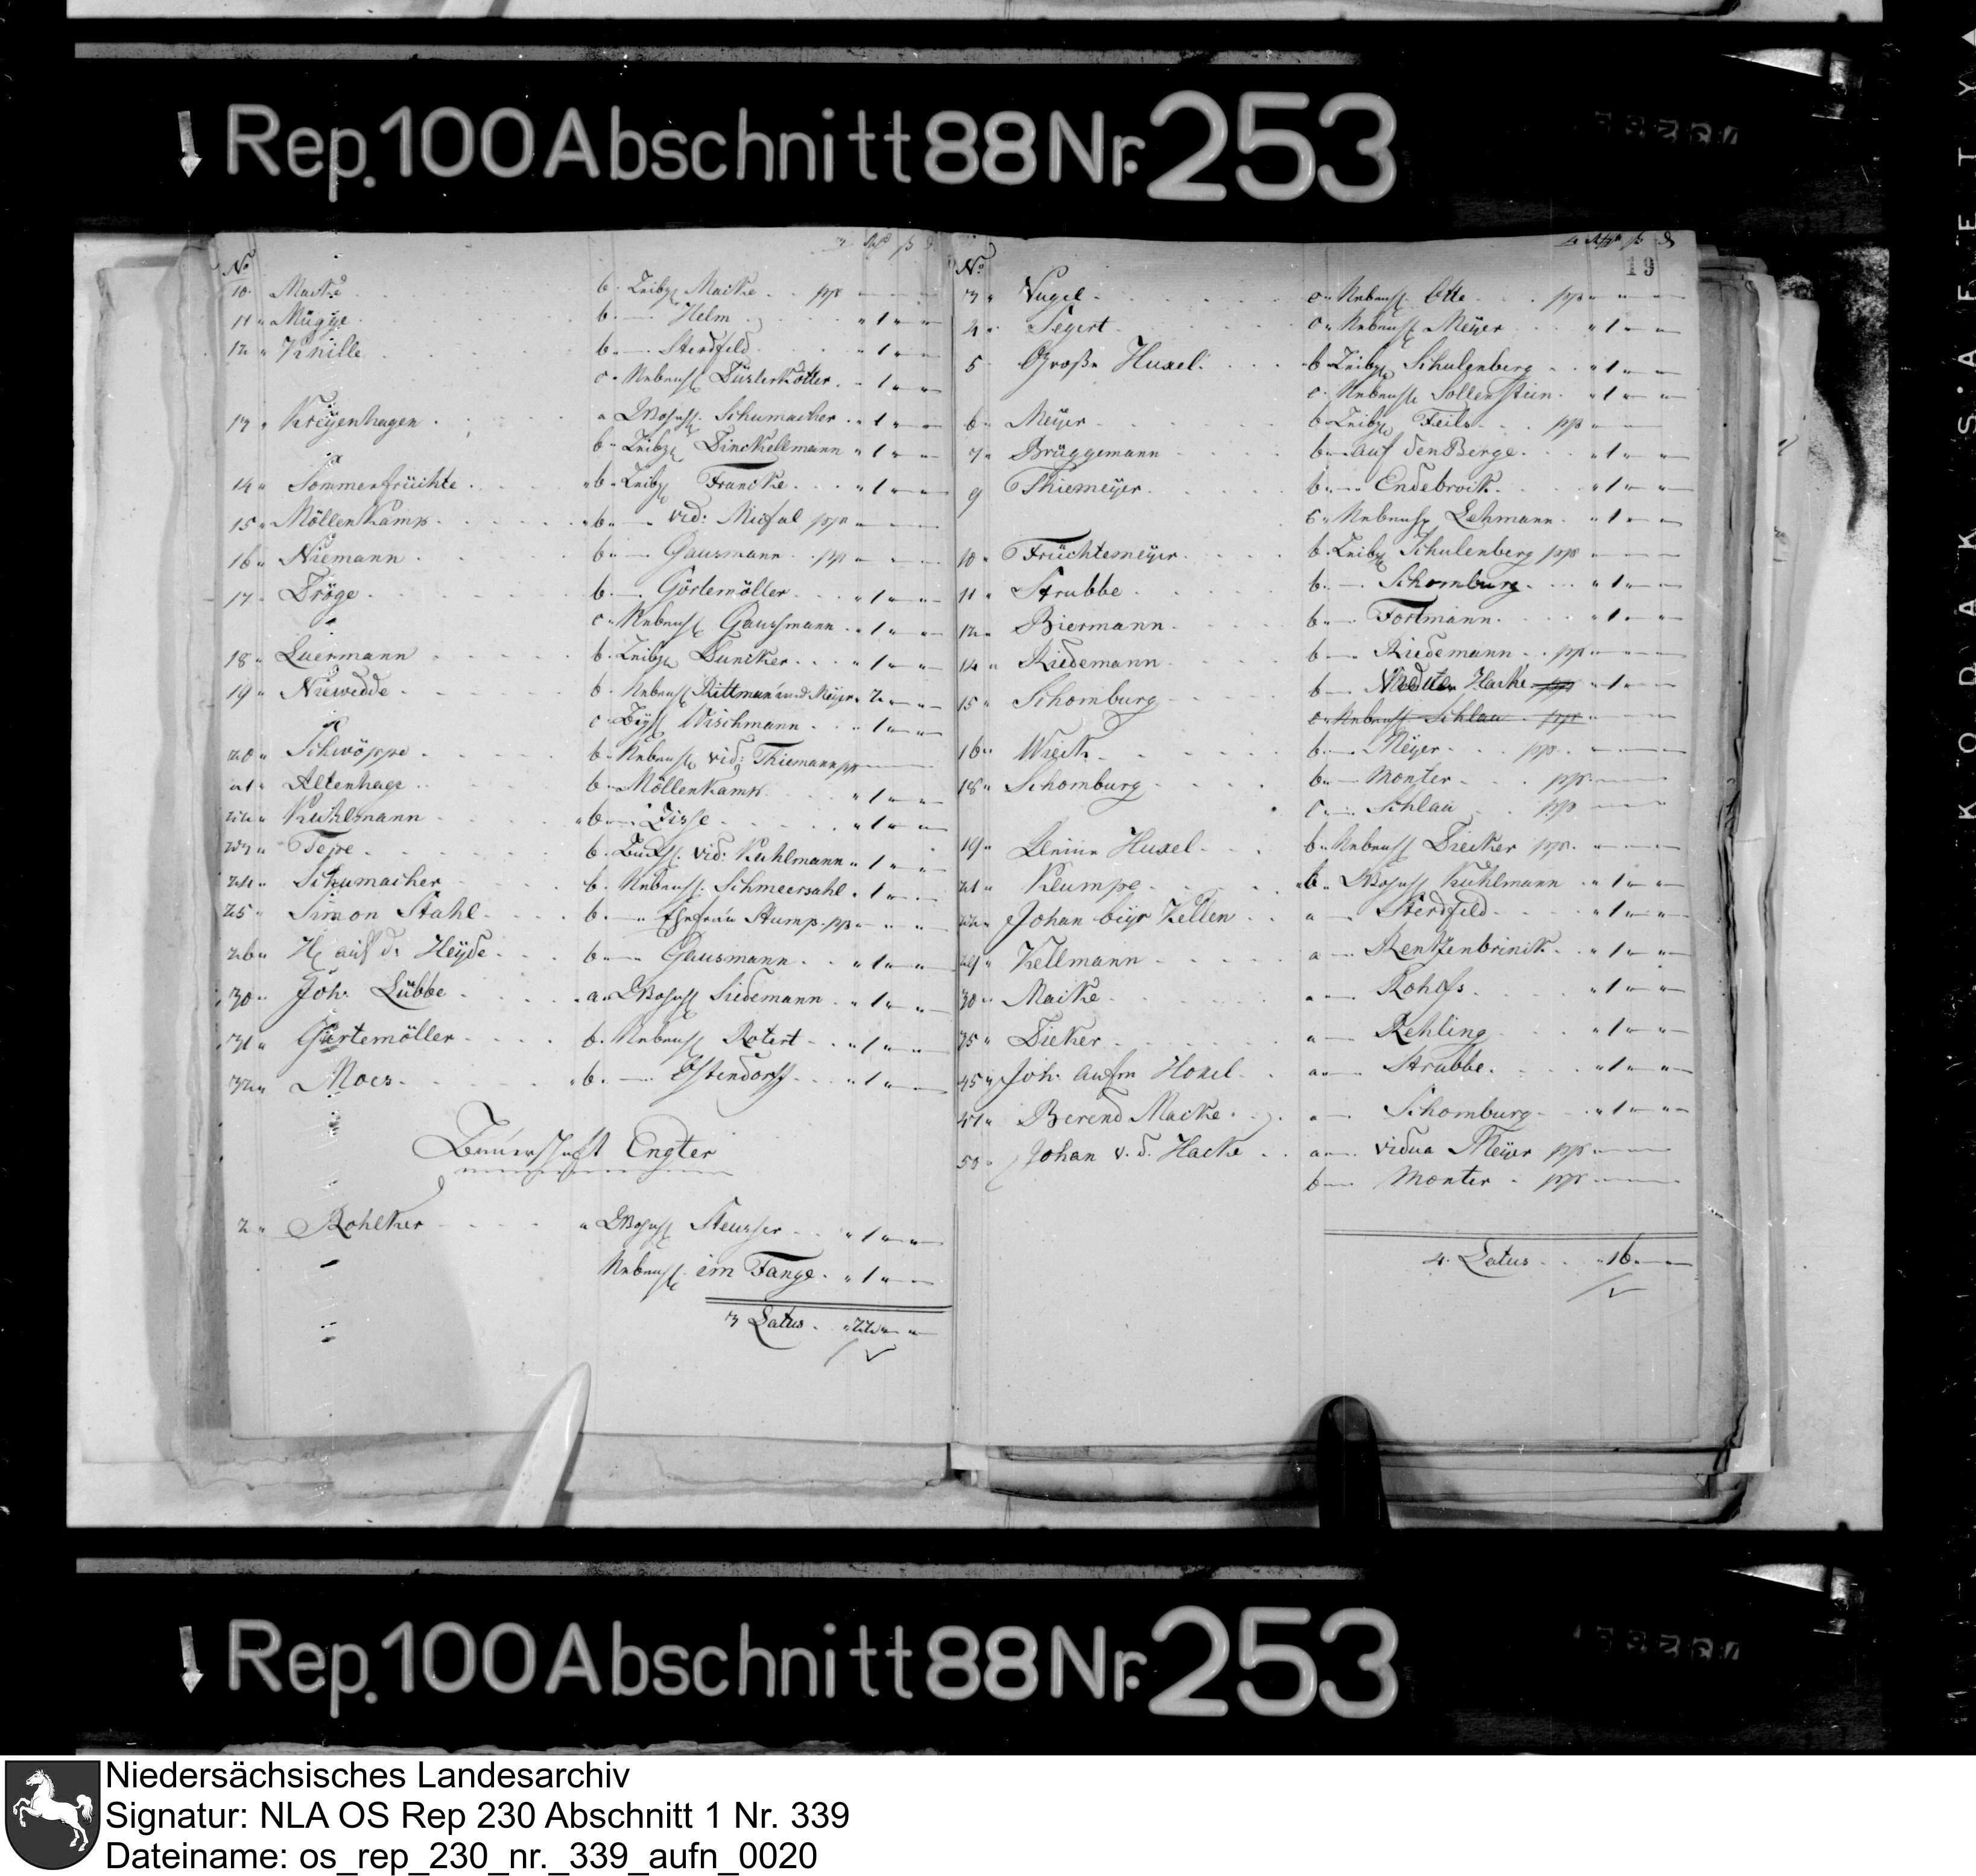 Rep. 100 Abschnitt 88 Nr. 253
3 Rth ß d
No
10. Macke b. Leibz. Macke pp
11 Mügge b. — Helm 1
12 Knille b. — Sterdfeld 1
c. Nebenhs Düsterkötter 1
13 Kreyenhagen a Wohnhs. Schumacher 1
b. Leibz. Dinckellmann 1
14 Sommerfrüchte b. Leibz. Francke 1
15 Möllenkamp b. — vid: pp
16 Niemann b. — Gausmann pp
17 Dröge b. — Görtemöller 1
c. Nebenhs Gaussmann 1
18 Luermann b. Leibz. Duncker 1
19 Niewedde b. Nebenhs Rittman und Meyer 2
c. Wischmann 1
20 Schwöppe b. Nebenhs vid: Thiemann pp
21 Altenhage b. Möllenkamp 1
22 Kuhlmann b. — Disse 1
23 Tepe b. vid: Kuhlmann 1
24 Schumacher b. Nebenhs. Schmeersahl 1
25 Simon Stahl b. — Ehefrau Stump. pp
26 H. auf d. Heyde b. — Gausmann 1
30 Joh. Lübbe a. Wohnhs Siedemann 1
31 Görtemöller b. Nebenhs Rotert 1
32 Moes b. — Ostendorff 1
Bauerschaft Engter
2 Rohlker a Wohnhs Steusser 1
Nebenhs. im Fange 1
3 Latus 22
4 Rth ß d
19
No
3 Vugel c. Nebenhs. Otte pp
4 Segert c. Nebenhs Meyer 1
5 Große Huxel b. Leibz. Schulenberg 1
c. Nebenhs Sollenstein 1
6 Meyer b. Leibz. Feils pp
7 Brüggemann b. — auf den Berge 1
9 Thiemeyer b. — Endebrock 1
c. Nebenhs Lehmann 1
10 Früchtemeyer b. Leibz. Schulenberg pp
11 Strubbe b. — Schomburg 1
12 Biermann b. — Fortmann 1
14 Riedemann b. — Riedemann pp
15 Schomburg b. — Hacke pp 1
c. Nebenhs Schlau pp
16 Wieck b. — Meyer pp
18 Schomburg b. — Monter pp
c. — Schlau pp
19 Kleine Huxel b. Nebenhs Diecker pp
21 Klumpe b. Wohnhs Kuhlmann 1
22 Johan beyr Kellen a — Sterdfeld 1
24 Kellmann a — Rentzenbrinck 1
30 Macke a — Rohlfs 1
35 Dieker a — Rehling 1
45 Joh. aufm Hoxel a — Strubbe 1
47 Berend Macke a — Schomburg 1
50 Johan v. d. Hacke a — vidua Meyer pp
b — Monter pp
4. Latus 16
Rep. 100 Abschnitt 88 Nr. 253
KODAK SAFETY
Niedersächsisches Landesarchiv
Signatur: NLA OS Rep 230 Abschnitt 1 Nr. 339
Dateiname: os_rep_230_nr._339_aufn_0020